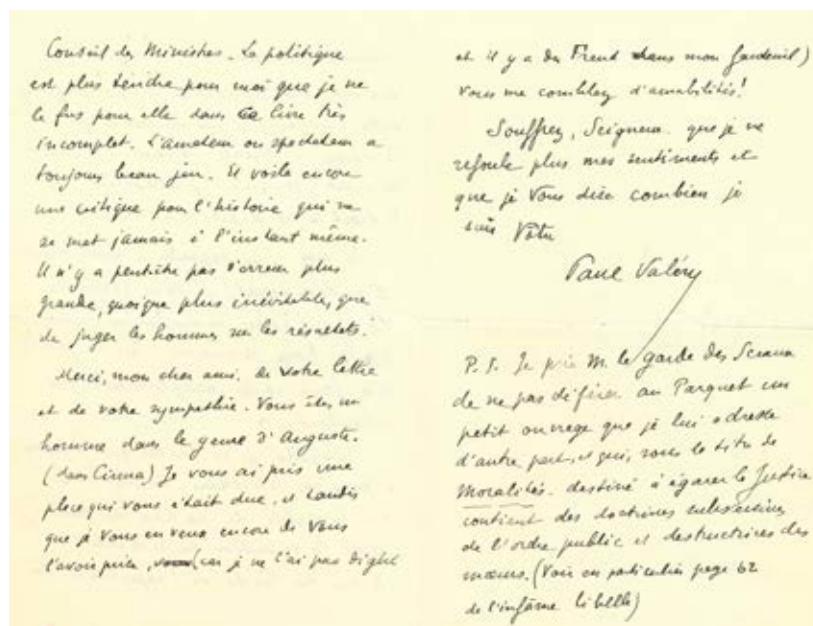 Conseil des Ministres. La politique
est plus tendre pour moi que je ne
le fus pour elle dans ce livre très
incomplet. L'amateur ou spectateur a
toujours beau jeu. Et voilà encore
une critique pour l'histoire qui ne
se met jamais à l'instant même.
Il n'y a peut-être pas d'erreur plus
grande, quoique plus inévitable, que
de juger les hommes sur les résultats.
Merci, mon cher ami, de votre lettre
et de votre sympathie. Vous êtes un
homme dans le genre d'Auguste.
(dans Cinna) Je vous ai pris une
place qui vous était due, et tandis
que je vous en veux encore de vous
l'avoir prise, (car je ne l'ai pas digéré
et il y a du Freud dans mon fauteuil)
vous me comblez d'amabilités!
Souffrez, Seigneur que je ne
refoule plus mes sentiments et
que je vous dise combien je
suis Vôtre
Paul Valéry
P.S. Je prie M. le garde des Sceaux
de ne pas déférer au Parquet un
petit ouvrage que je lui adresse
d'autre part, et qui, sous le titre de
Moralités. destiné à égarer la Justice
contient des doctrines subversives
de l'ordre public et destructrices des
mœurs. (Voir en particulier page 62
de l'infâme libelle)